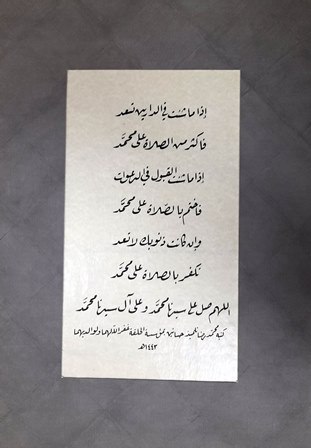 إذا ما شئت في الدارين تسعد
فأكثر من الصلاة على محمَّد
إذا ما شئت القبول في الدعوات
فاختم بالصَّلاة على محمَّد
وإن كانت ذنوبك لا تعد
تكفر بالصلاة على محمَّد
اللهم صل على سيدنا محمَّد وعلى آل سيدنا محمَّد
كتبه محمد رضا غفر الله لهما ولوالديهما
١٤٤٣هـ